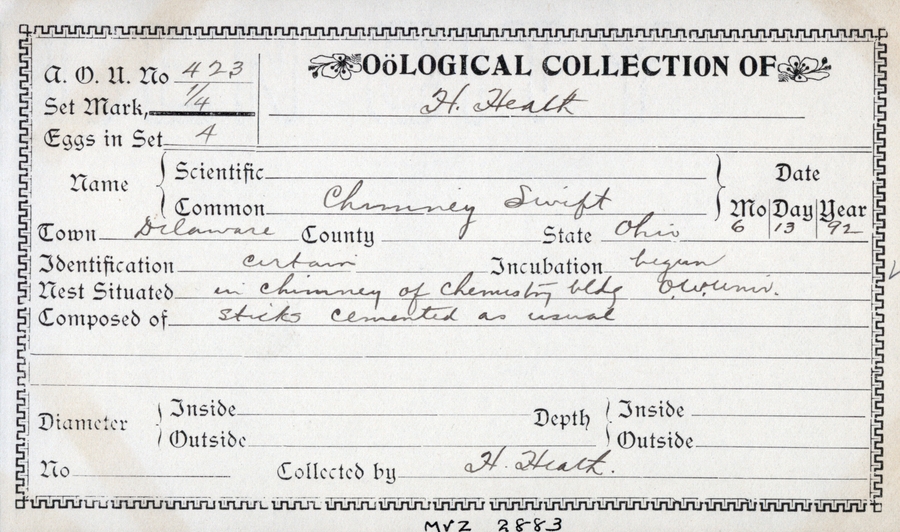 A. O. U. No 423
OöLOGICAL COLLECTION OF
Set Mark, 1/4
H. Heath
Eggs in Set 4
Name
Scientific
Common Chimney Swift
Date
Mo Day Year
6 13 92
Town Delaware County State Ohio
Identification certain Incubation begun
Nest Situated in chimney of Chemistry bldg O.W. Univ.
Composed of sticks cemented as usual
Diameter Inside Depth Inside
Outside Outside
No Collected by H. Heath.
MVZ 2883